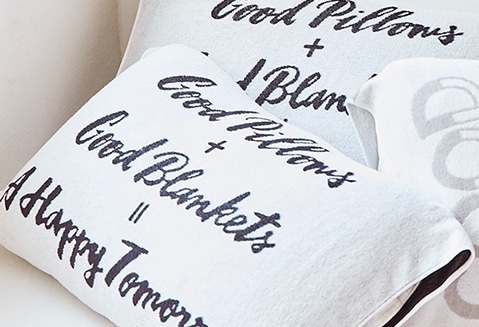 Good Pillows
+
d Blan
Good Pillows
+
Good Blankets
||
A Happy Tomorr